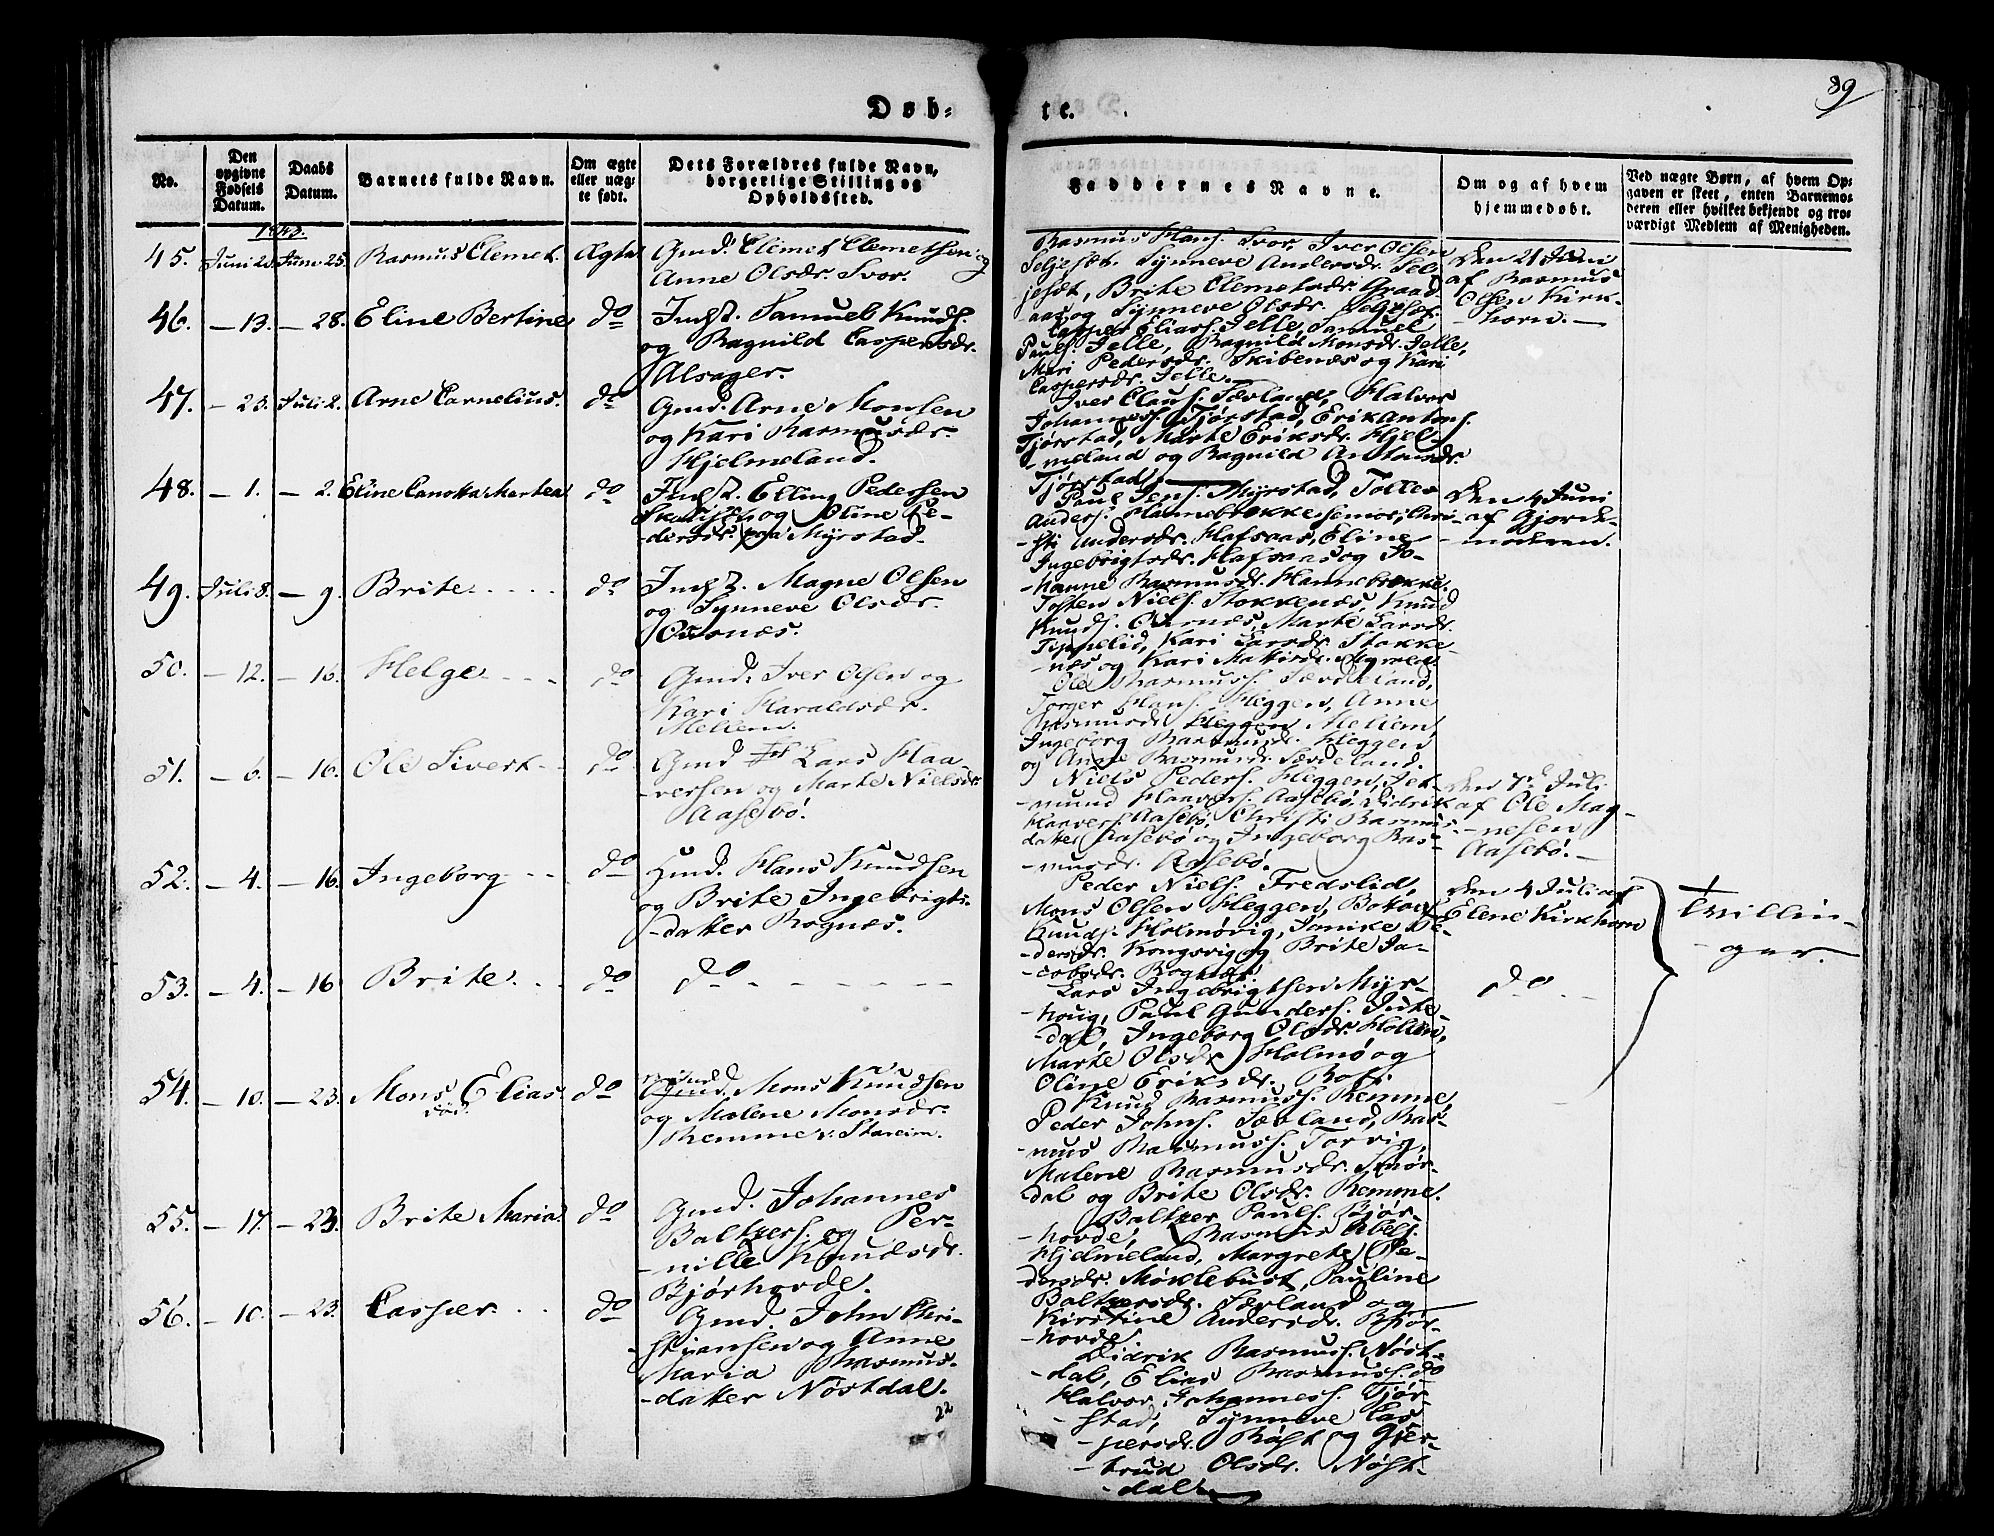 Døb-
te.
89
No.
Den opgivne Fødsels Datum.
Daabs Datum.
Barnets fulde Navn.
Om ægte eller uæg-
te født.
Dets Forældres fulde Navn,
borgerlige Stilling og
Opholdssted.
Faddernes Navne.
Om og af hvem
hjemmedøbt.
Ved uægte Børn, af hvem Op-
gaven er skeet, enten Barnemo-
deren eller hvilket bekjendt og tro-
værdigt Medlem af Menigheden.
1843.
45. Juni 20 Juni 25. Rasmus Clemet. Ægte
Gmd. Clemet Clemetsen og
Anne Olsdr. Svor.
Rasmus Hans. Svor, Iver Olsen
Seljeset, Synneve Andersdr. Sel-
jeset, Brite Clemetsdr. Graad-
aas og Synneve Olsdr. Seljeset.
Den 21 Juni
af Rasmus
Olsen Kirk-
horn.
46. — 13. — 28. Eline Bertine do
Indst. Samuel Knuds.
og Ragnild Caspersdr.
Alsager.
Casper Elias. Jelle, Samuel
Pauls. Jelle, Ragnild Monsdr. Jelle,
Mari Pedersdr. Skibenes og Kari
Caspersdr. Jelle.
47. — 23. Juli 2. Arne Cornelius. do
Gmd. Arne Monsen
og Kari Rasmusdr.
Hjelmeland.
Iver Claus. Sæland, Halvor
Johannes. Tjørstad, Erik Antons.
Tjørstad, Marte Eriksdr. Hjel-
meland og Ragnild Antonsdr.
Tjørstad
48. — 1. — 2. Eline Martea do
Indst. Elling Pedersen
og Oline Pe-
dersdr. Myrstad.
Paul Jens. Myrstad, Tolles
Anders. Hannebrekke senior, Chri-
sti Andersdr. Hafsaas, Eline
Ingebrigtsdr. Hafsaas og Jo-
hanne Rasmusdr. Hannebrekke.
Den 4 Juni
af Gjorde-
moderen.
49. Juli 8. — 9. Brite do
Indst. Magne Olsen
og Synneve Olsdr.
Osnæs.
Tosten Niels. Stokkenæs, Knud
Knuds. Osnæs, Marte Larsdr.
Tippelid, Kari Larsdr. Stokke-
næs og Kari Mattisdr. Myrlid
50. — 12. — 16. Helge do
Gmd. Iver Olsen og
Kari Haraldsdr.
Mellem.
Ole Rasmuss. Sædeland,
Torger Hans. Heggen, Anne
Rasmusdr. Heggen Mellem
Ingeborg Rasmusdr. Heggen
og Anne Rasmusdr. Sædeland.
51. — 6. — 16. Ole Sivert do
Gmd Lars Haa-
versen og Marte Nielsdr.
Aasebø.
Niels Peders. Heggen, Set-
mund Haavers. Aasebø, Didrik
Haavers. Aasebø, Christi Rasmus-
datter Aasebø og Ingeborg Ras-
musdr. Aasebø.
Den 7de Juli
af Ole Mag-
nesen
Aasebø.
52. — 4. — 16. Ingeborg do
Hmd. Hans Knudsen
og Brite Ingebrigts-
datter Rognes.
Peder Niels. Fredslid,
Mons Olsen Heggen,
Knuds. Holmøvig, Jomike Pe-
dersdr. Kongsvig og Brite Ja-
cobsdr. Rognes.
Den 4 Juli af
Elene Kirkhorn
Tvillin-
ger.
53. — 4. — 16 Brite do
do
Lars Ingebrigtsen Myr-
houg, Paul Gunders. Jute-
dal, Ingeborg Olsdr. Hollen,
Marte Olsdr Holmø og
Oline Eriksdr.
do
54. — 10. — 23. Mons Elias. do
død.
Gmd. Mons Knudsen
og Malene Monsdr.
Remme v. Stareim.
Knud Rasmuss. Remme,
Peder Johns. Sæland, Ras-
mus Rasmuss. Torvig,
Malene Rasmusdr. Smør-
dal og Brite Olsdr. Remme.
55. — 17. — 23. Brite Maria do
Gmd. Johannes
Baltzers. og Per-
nille Knudsdr.
Bjørhovde.
Baltzer Pauls. Bjør-
hovde, Rasmus Abels.
Hjelmeland, Margrete Pe-
dersdr. Møklebust, Pauline
Baltzersdr. Særland og
Kirstine Andersdr. Bjør-
hovde.
56. — 10. — 23. Casper. do
Gmd. John Chri-
stiansen og Anne
Maria Rasmus-
datter Nøstdal.
Didrik Rasmuss. Nøst-
dal, Elias Rasmuss. do
Halvor Johanness. Tjør-
stad, Synneve Cas-
persdr. Røst og Gjer-
trud Olsdr. Nøst-
dal.
22